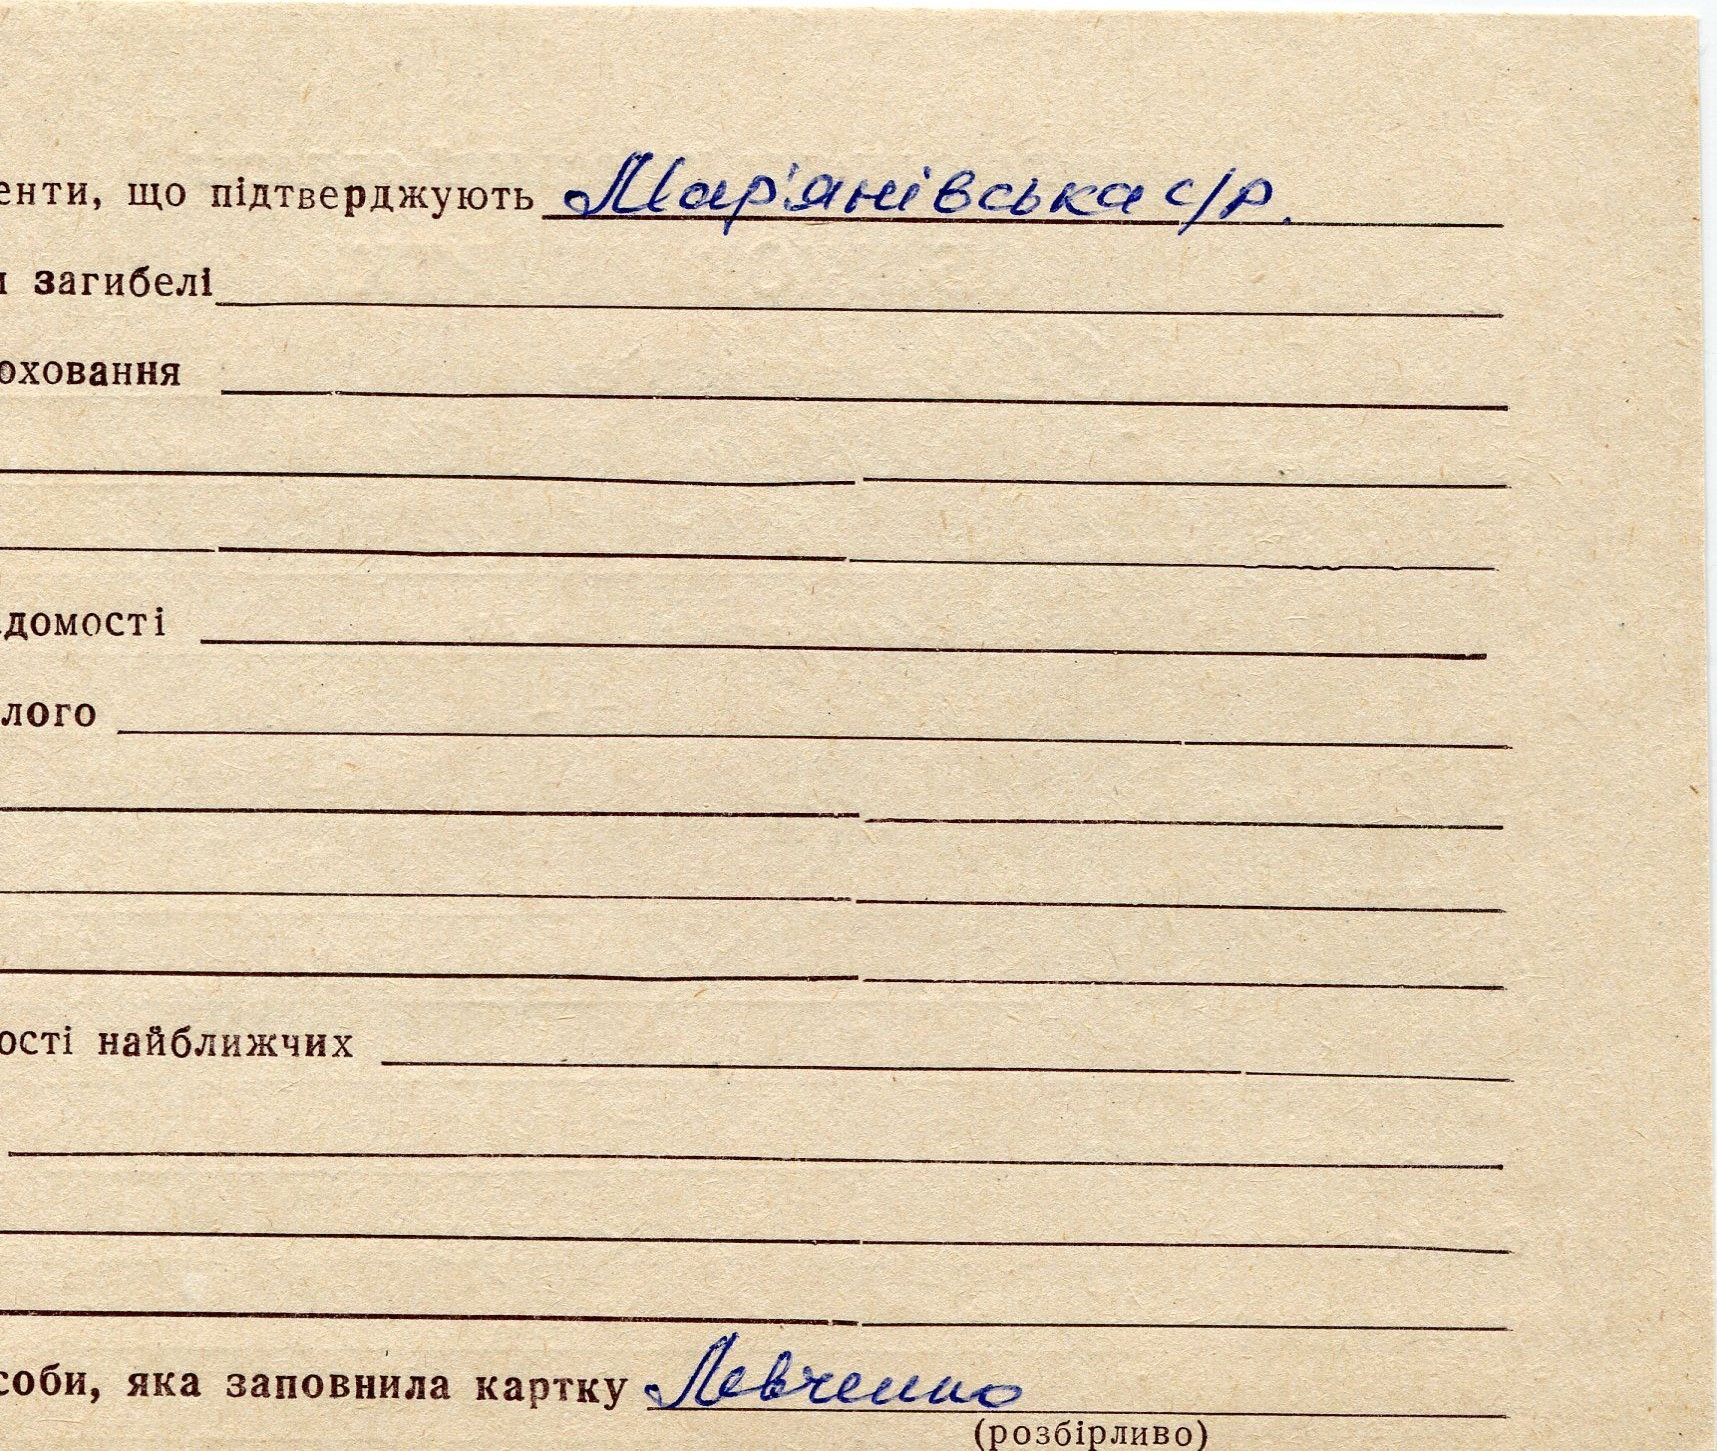 енти, що підтверджують Мар'янівська с/р.
и загибелі
оховання
ідомості
лого
ості найближчих
соби, яка заповнила картку Левченко
(розбірливо)